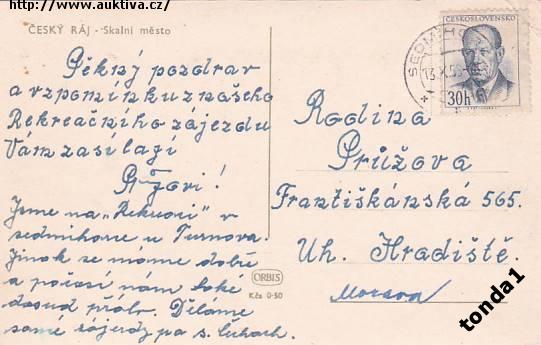 http://www.auktiva.cz/
ČESKÝ RÁJ - Skalní město
Pěkný pozdrav
a vzpomínku z našeho
Rekreačního zájezdu
Vám zasílají
Jsme na „Rekreaci" v
sedmihorce u Turnova.
Jinak se máme dobře
a počasí nám také
dosud přálo. Děláme
samé zájezdy po s. Čechách.
ČESKOSLOVENSKO
30h
Rodina
Průžova
Františkánská 565.
Uh. Hradiště.
Morava
ORBIS
Kčs 0·50
tonda1